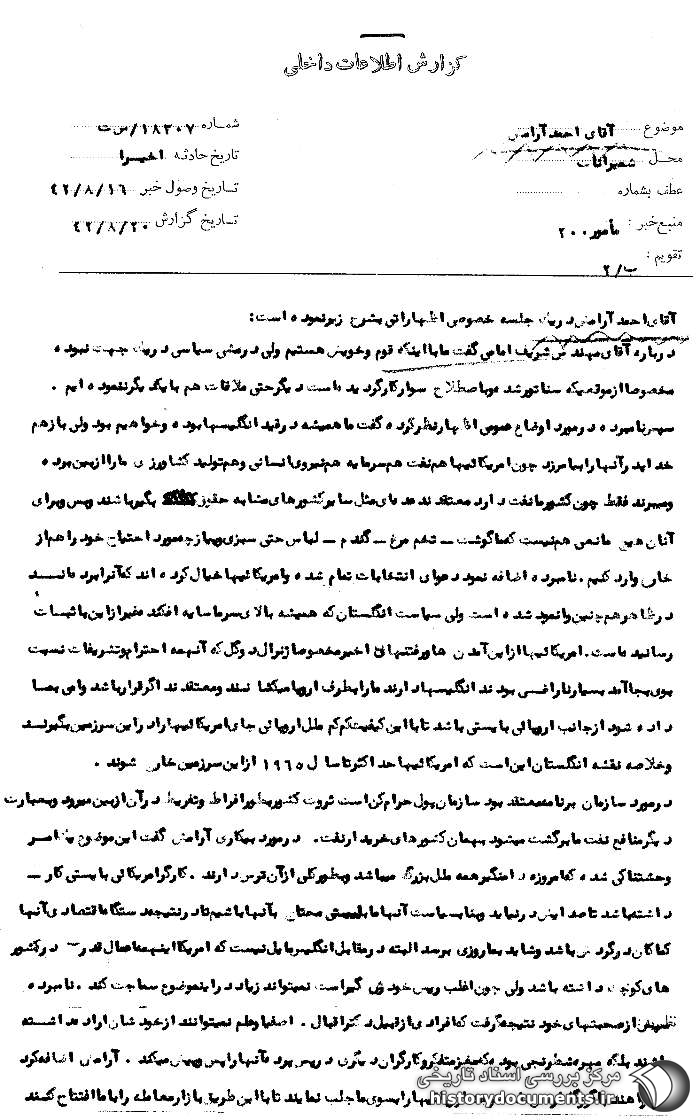 گزارش اطلاعات داخلی
موضوع آقای احمد آرامش
شماره ۱۸۳۰۷/س ت
محل شمیرانات
تاریخ حادثه اخیرا
عطف بشماره
تاریخ وصول خبر ۴۲/۸/۱۶
منبع خبر : مأمور ۲۰۰
تاریخ گزارش ۴۲/۸/۲۰
تقویم : ب/۲
آقای احمد آرامش در یک جلسه خصوصی اظهاراتی بشرح زیر نموده است:
درباره آقای مهندس شریف امامی گفت ما با اینکه قوم و خویش هستیم ولی در مشی سیاسی در یک جهت نبوده
مخصوصا از موقعیکه سناتور شده و باصطلاح سوار کار گردیده است دیگر حتی ملاقات هم با یکدیگر ننموده ایم .
سپس نامبرده در مورد اوضاع عمومی اظهار نظر کرده گفت ما همیشه در قید انگلیسها بوده و خواهیم بود ولی باز هم
خدا پدر آنها را بیامرزد چون امریکائیها هم نفت هم سرمایه هم نیروی انسانی و هم تولید کشاورزی ما را از بین برده
و میبرند فقط چون کشور ما نفت دارد معتقدند عده ای مثل سایر کشورهای مشابه حقوق بگیر باشند و پس و برای
آنان هیچ مانعی هم نیست که ما گوشت ـ تخم مرغ ـ گندم ـ لباس حتی سبزی و پیاز مورد احتیاج خود را هم از
خارج وارد کنیم . نامبرده اضافه نمود دعوای انتخابات تمام شده و امریکائیها خیال کرده اند که آنرا برده مانند
در ظاهر هم چنین وانمود شده است ولی سیاست انگلستان که همیشه بالای سر ما سایه افکنده غیر از این باثبات
رسانیده است . امریکائیها از این آمدن ها و رفتنهای اخیر مخصوصا ژنرال دوگل که آنهمه احترام و تشریفات نسبت
بوی بجا آمد بسیار ناراضی بودند انگلیسها دارند ما را بطرف اروپا میکشانند و معتقدند اگر قرار باشد وامی بما
داده شود از جانب اروپائی بایستی باشد تا با این کیفیت کم کم ملل اروپائی جای امریکائیها را در این سرزمین بگیرند
و خلاصه نقشه انگلستان این است که امریکائیها حداکثر تا سال ۱۹۶۵ از این سرزمین خارج شوند .
در مورد سازمان برنامه معتقد بود سازمان پول حرام کن است ثروت کشور بطور افراط و تفریط در آن از بین میرود و بعبارت
دیگر منافع نفت ما برگشت میشود بهمان کشورهای خریدار نفت . در مورد بیکاری آرامش گفت این موضوع یک امر
وحشتناکی شده که امروزه دامنگیر همه ملل بزرگ میباشد و بطور کلی از آن ترس دارند . کارگر امریکائی بایستی کار ـ
داشته باشد تا صدایش در نیاید و بنا بسیاست آنها ما بایستی محتاج بآنها باشیم تا در نتیجه دستگاه اقتصادی آنها
کماکان در گردش باشد و شاید بما روزی برسد البته در مقابل انگلیس مایل نیست که امریکا اینهمه اعمال قدرت در کشور
های کوچک داشته باشد ولی چون اغلب و پس خودش گیر است نمیتواند زیاد در اینموضوع سماجت کند . نامبرده
از صحبتهای خود نتیجه گرفت که افرادی از قبیل دکتر اقبال . اصفیا و علم نمیتوانند از خودشان اراده داشته
باشند بلکه مهره شطرنجی بوده که مغز متفکر و کارگردان دیگری در پس پرده آنها را پس و پیش میکند . آرامش اضافه کرد
بسوی ما جلب نمایند تا با این طریق بازار معامله را با ما افتتاح کنند
مرکز بررسی اسناد تاریخی
historydocuments.ir